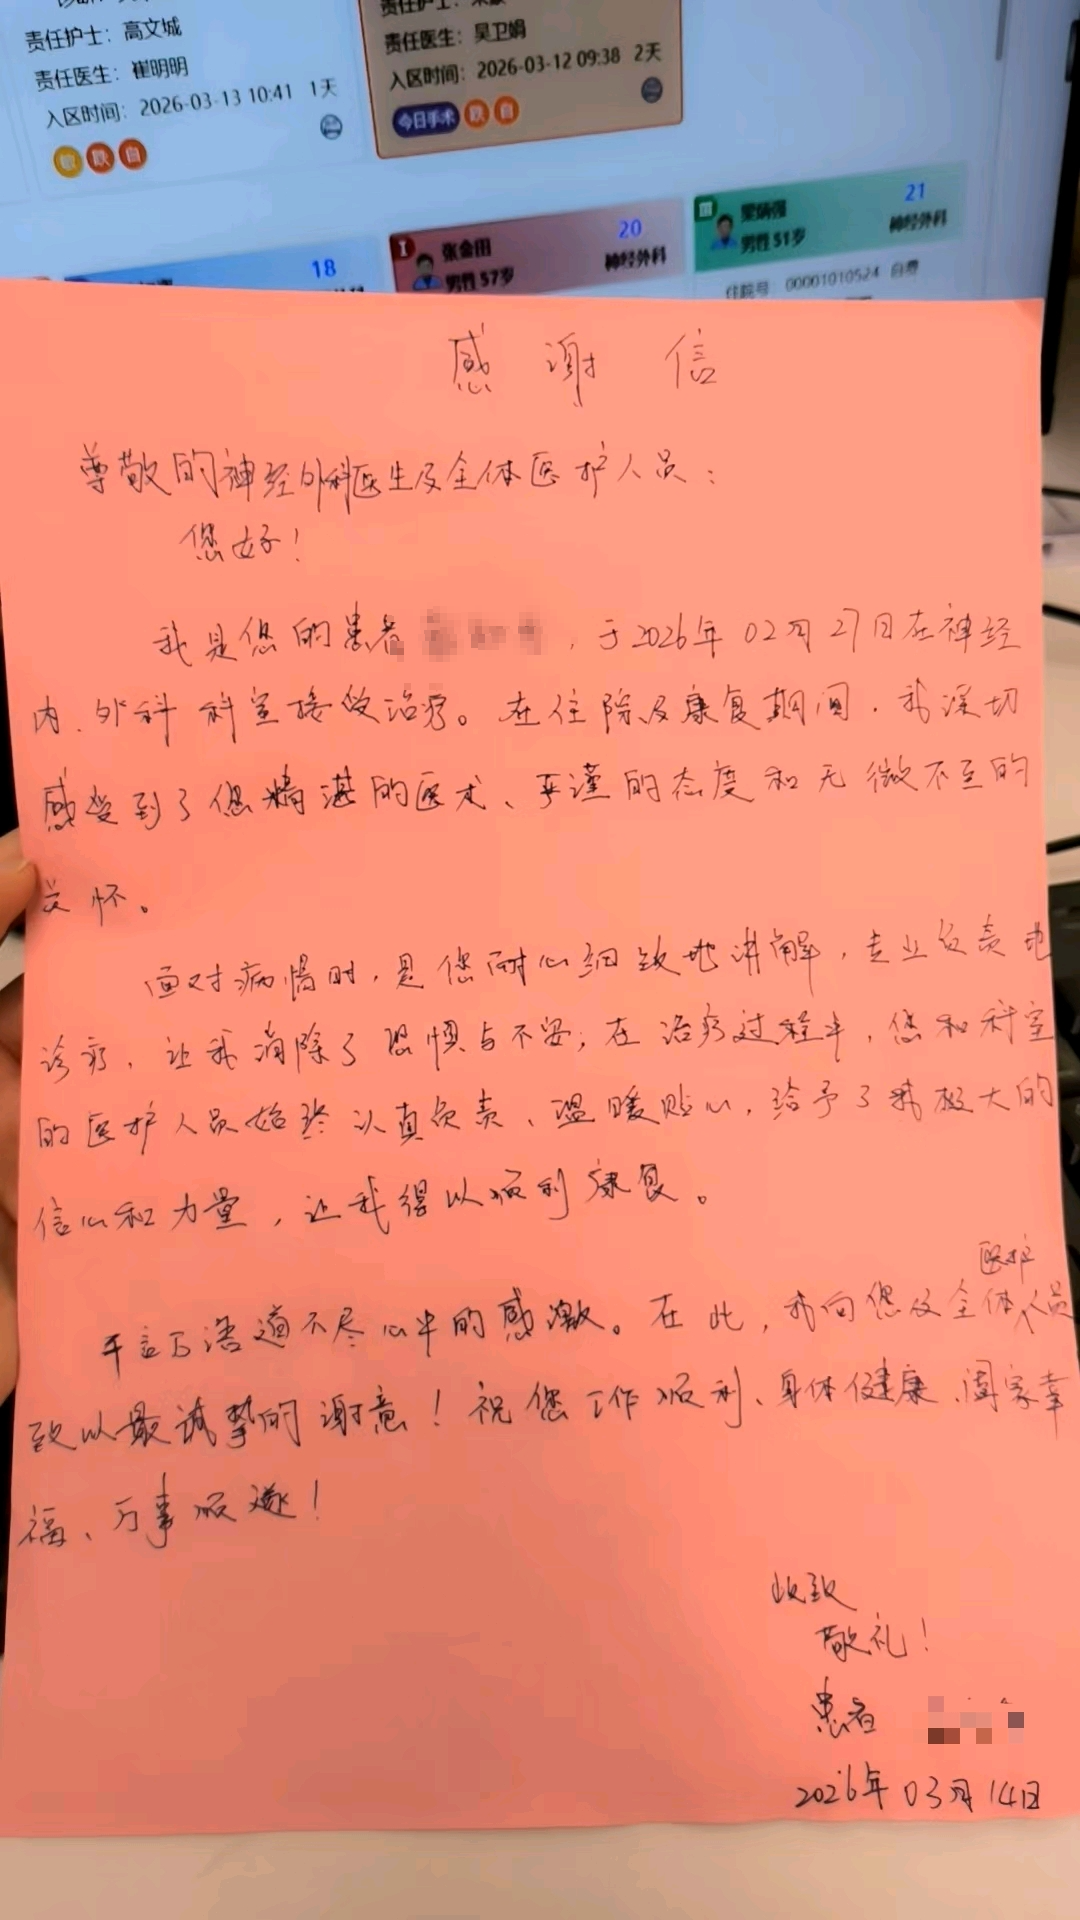 责任护士：高文城
责任医生：崔明明
入区时间：2026-03-13 10:41 1天
责任护士：
责任医生：吴卫娟
入区时间：2026-03-12 09:38 2天
今日手术 跌 自
跌 自
18
I 张金田 20
男性 57岁 神经外科
21
男性 51岁 神经外科
住院号：00001010524 自费
感谢信
尊敬的神经外科医生及全体医护人员：
您好！
我是您的患者，于2026年02月27日在神经
内、外科科室接受治疗。在住院及康复期间，我深切
感受到了您精湛的医术、严谨的态度和无微不至的
关怀。
面对病情时，是您耐心细致地讲解，专业负责地
诊疗，让我消除了恐惧与不安；在治疗过程中，您和科室
的医护人员始终认真负责、温暖贴心，给予了我极大的
信心和力量，让我得以顺利康复。
千言万语道不尽心中的感激。在此，我向您及全体医护人员
致以最诚挚的谢意！祝您工作顺利、身体健康、阖家幸
福、万事顺遂！
此致
敬礼！
患者
2026年03月14日